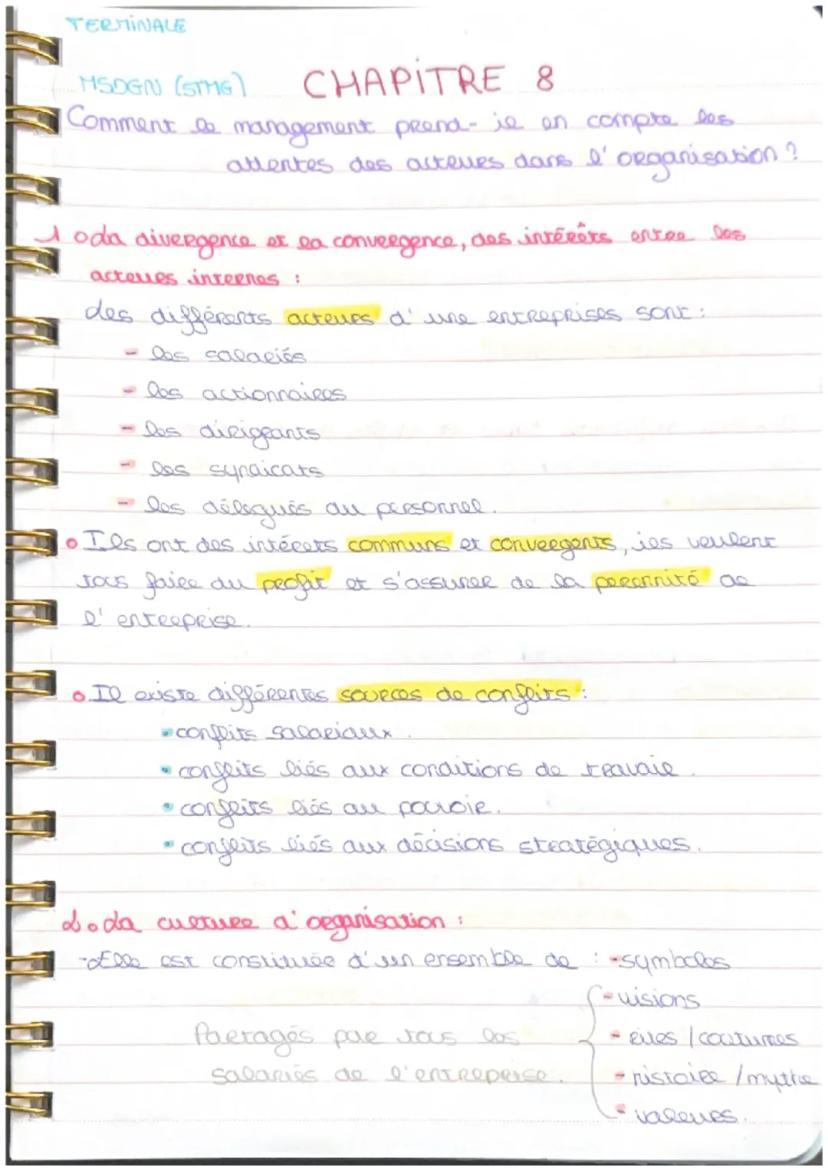 TERMINALE
MSDGN (STMG) CHAPITRE 8
Comment le management prend-ie en compte les
attentes des acteurs dans l'organisation ?
1 • La divergence et la convergence, des intérêts entre les
acteurs internes :
Les différents acteurs d'une entreprises sont :
- les salariés
- les actionnaires
- les dirigeants
- les syndicats
- les délégués du personnel.
• Ils ont des intérêts communs et convergents, ils veulent
tous faire du profit et s'assurer de la perennité de
l'entreprise.
• Il existe différentes sources de conflits :
• conflits salariaux.
• conflits liés aux conditions de travail.
• conflits liés au pouvoir.
• conflits liés aux décisions stratégiques.
2 • La culture d'organisation :
- Elle est constituée d'un ensemble de : - symboles
- visions
Partagés par tous les - rites / coutumes
salariés de l'entreprise. - histoire / mythe
- valeurs.